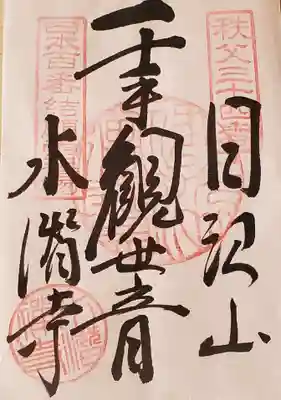 秩父三十四番
日沢山
千手觀世音
日本百番結願
水潜寺